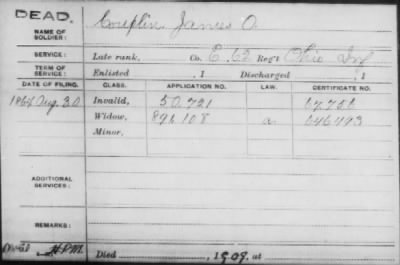 DEAD.
NAME OF SOLDIER: Couplin James O.
SERVICE: Late rank, Co. E. 62 Reg't Ohio Inf
TERM OF SERVICE: Enlisted , 1 Discharged , 1
DATE OF FILING. CLASS. APPLICATION NO. LAW. CERTIFICATE NO.
1864 Aug. 30 Invalid, 50.721 67.756
Widow, 896108 a. 646493
Minor,
ADDITIONAL SERVICES:
REMARKS:
Died , 1909, at